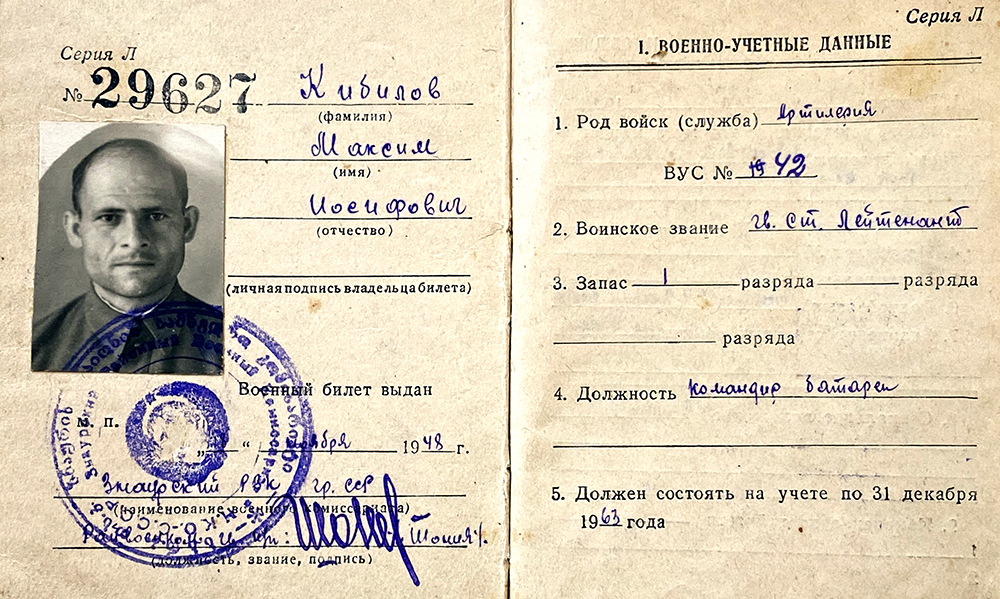 Серия Л
№ 29627
Кибилов
(фамилия)
Максим
(имя)
Иосифович
(отчество)
(личная подпись владельца билета)
Военный билет выдан
м. п.
„ “ ноября 1948 г.
Знаурский РВК гр. ССР
(наименование военного комиссариата)
(должность, звание, подпись)
Серия Л
I. ВОЕННО-УЧЕТНЫЕ ДАННЫЕ
1. Род войск (служба) Артилерия
ВУС № 42
2. Воинское звание гв. ст. Лейтенант
3. Запас 1 разряда разряда
разряда
4. Должность командир батареи
5. Должен состоять на учете по 31 декабря
1963 года